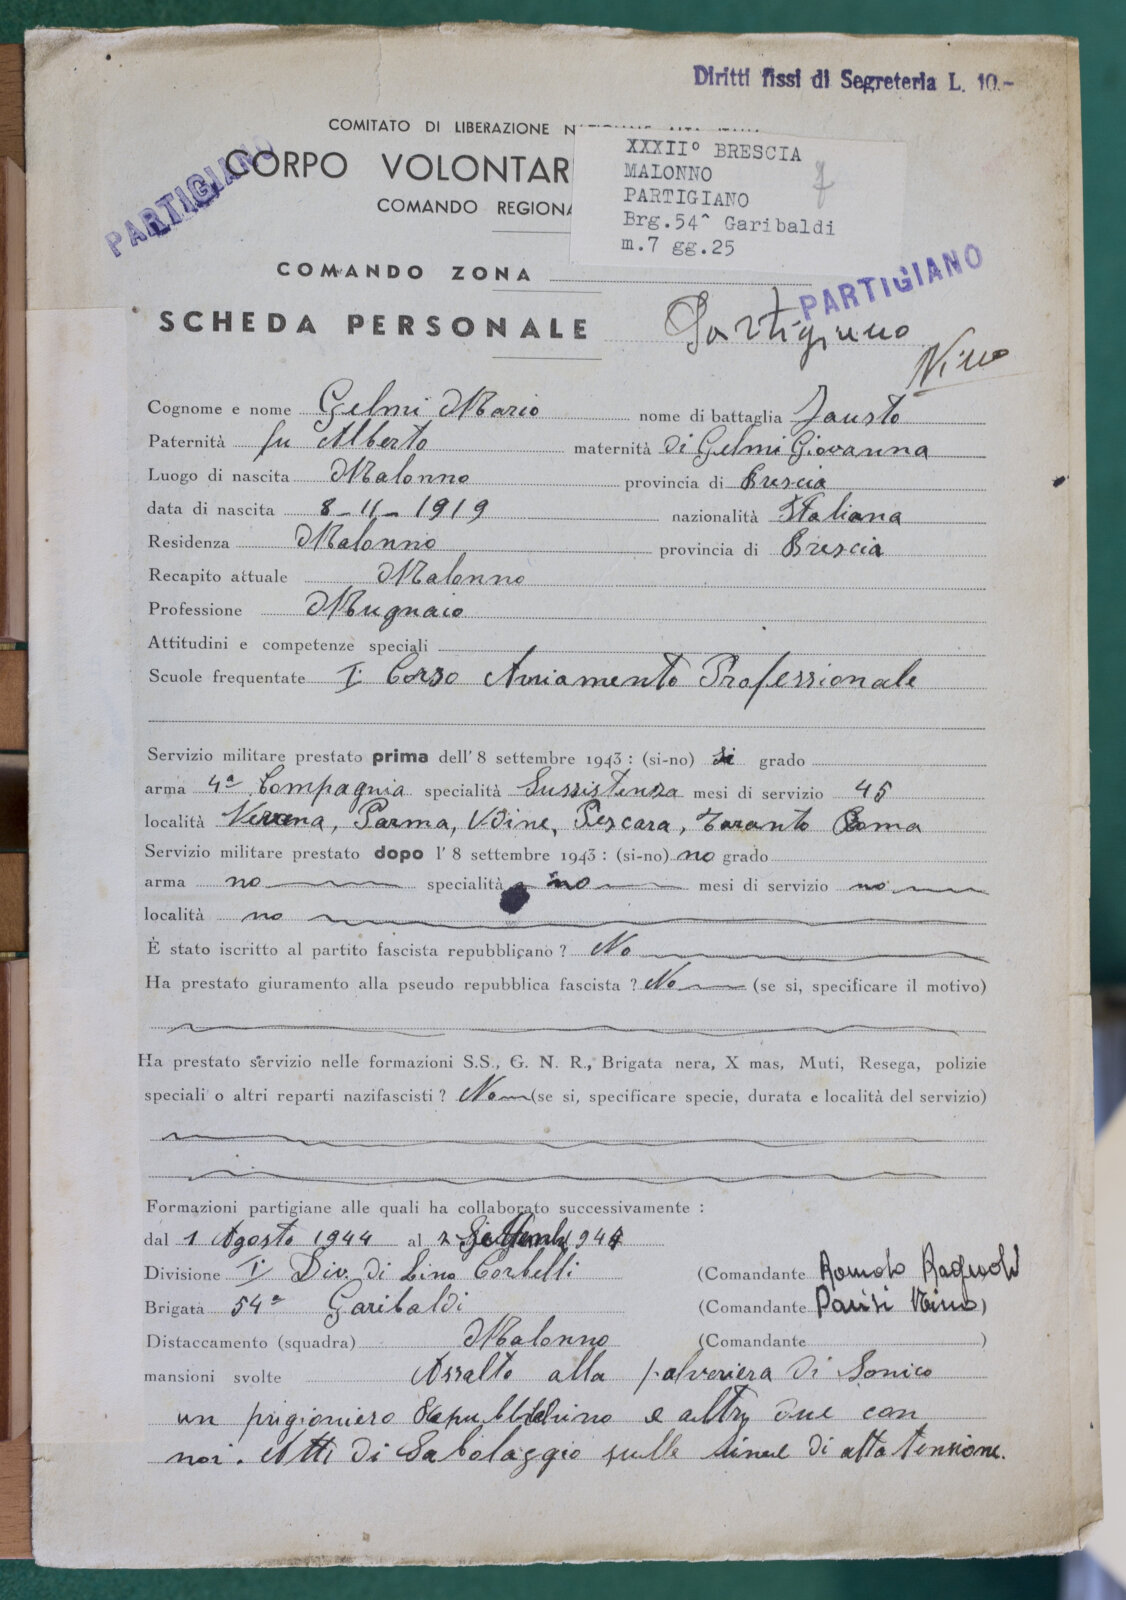 Diritti fissi di Segreteria L. 10.-
COMITATO DI LIBERAZIONE
CORPO VOLONTAR
COMANDO REGIONA
XXXII° BRESCIA
MALONNO
PARTIGIANO
Brg.54^ Garibaldi
m.7 gg.25
7
PARTIGIANO
PARTIGIANO
COMANDO ZONA
SCHEDA PERSONALE Partigiano
Nino
Cognome e nome Gelmi Mario nome di battaglia Fausto
Paternità fu Alberto maternità di Gelmi Giovanna
Luogo di nascita Malonno provincia di Brescia
data di nascita 8-11-1919 nazionalità Italiana
Residenza Malonno provincia di Brescia
Recapito attuale Malonno
Professione Mugnaio
Attitudini e competenze speciali
Scuole frequentate I° Corso Avviamento Professionale
Servizio militare prestato prima dell' 8 settembre 1943: (si-no) si grado
arma 4ª Compagnia specialità Sussistenza mesi di servizio 45
località Verona, Parma, Udine, Pescara, Taranto Roma
Servizio militare prestato dopo l' 8 settembre 1943: (si-no) no grado
arma no specialità no mesi di servizio no
località no
È stato iscritto al partito fascista repubblicano? No
Ha prestato giuramento alla pseudo repubblica fascista? No (se si, specificare il motivo)
Ha prestato servizio nelle formazioni S.S., G. N. R., Brigata nera, X mas, Muti, Resega, polizie
speciali o altri reparti nazifascisti? No (se si, specificare specie, durata e località del servizio)
Formazioni partigiane alle quali ha collaborato successivamente:
dal 1 Agosto 1944 al 1944
Divisione I° Div. di Lino Corbelli (Comandante Romolo Ragnoli
Brigata 54ª Garibaldi (Comandante Parisi Nino)
Distaccamento (squadra) Malonno (Comandante )
mansioni svolte Assalto alla polveriera di Sonico
un prigioniero Repubblichino e altri due con
noi. Atti di Sabotaggio sulle linee di alta tensione.